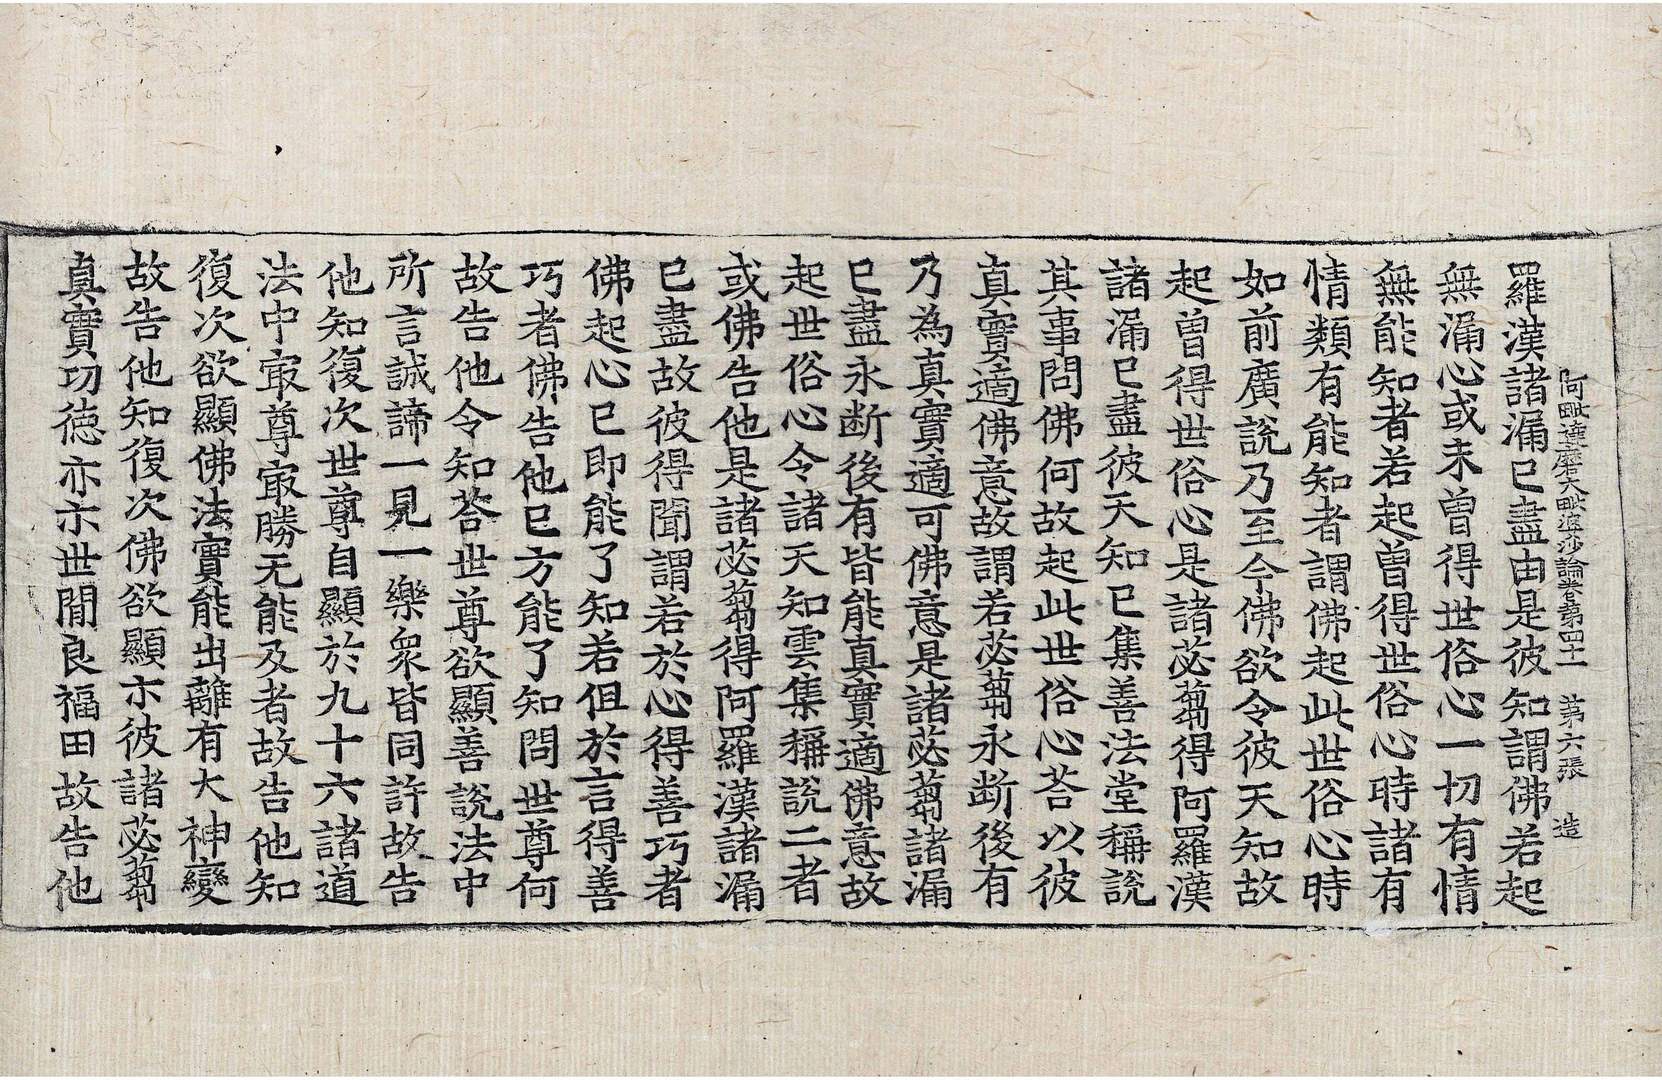 阿毗達磨大毗婆沙論卷第四十一 第六張 造
羅漢諸漏已盡由是彼知謂佛若起
無漏心或未曾得世俗心一切有情
無能知者若起曾得世俗心時諸有
情類有能知者謂佛起此世俗心時
如前廣說乃至令佛欲令彼天知故
起曾得世俗心是諸苾蒭得阿羅漢
諸漏已盡彼天知已集善法堂稱說
其事問佛何故起此世俗心荅以彼
真實適佛意故謂若苾蒭永断後有
乃為真實適可佛意是諸苾蒭諸漏
已盡永断後有皆能真實適佛意故
起世俗心令諸天知雲集稱說二者
或佛告他是諸苾蒭得阿羅漢諸漏
已盡故彼得聞謂若於心得善巧者
佛起心已即能了知若伹於言得善
巧者佛告他已方能了知問世尊何
故告他令知荅世尊欲顯善說法中
所言誠諦一見一樂衆皆同許故告
他知復次世尊自顯於九十六諸道
法中㝡尊㝡勝无能及者故告他知
復次欲顯佛法實能出離有大神變
故告他知復次佛欲顯示彼諸苾蒭
真實功德亦示世閒良福田故告他